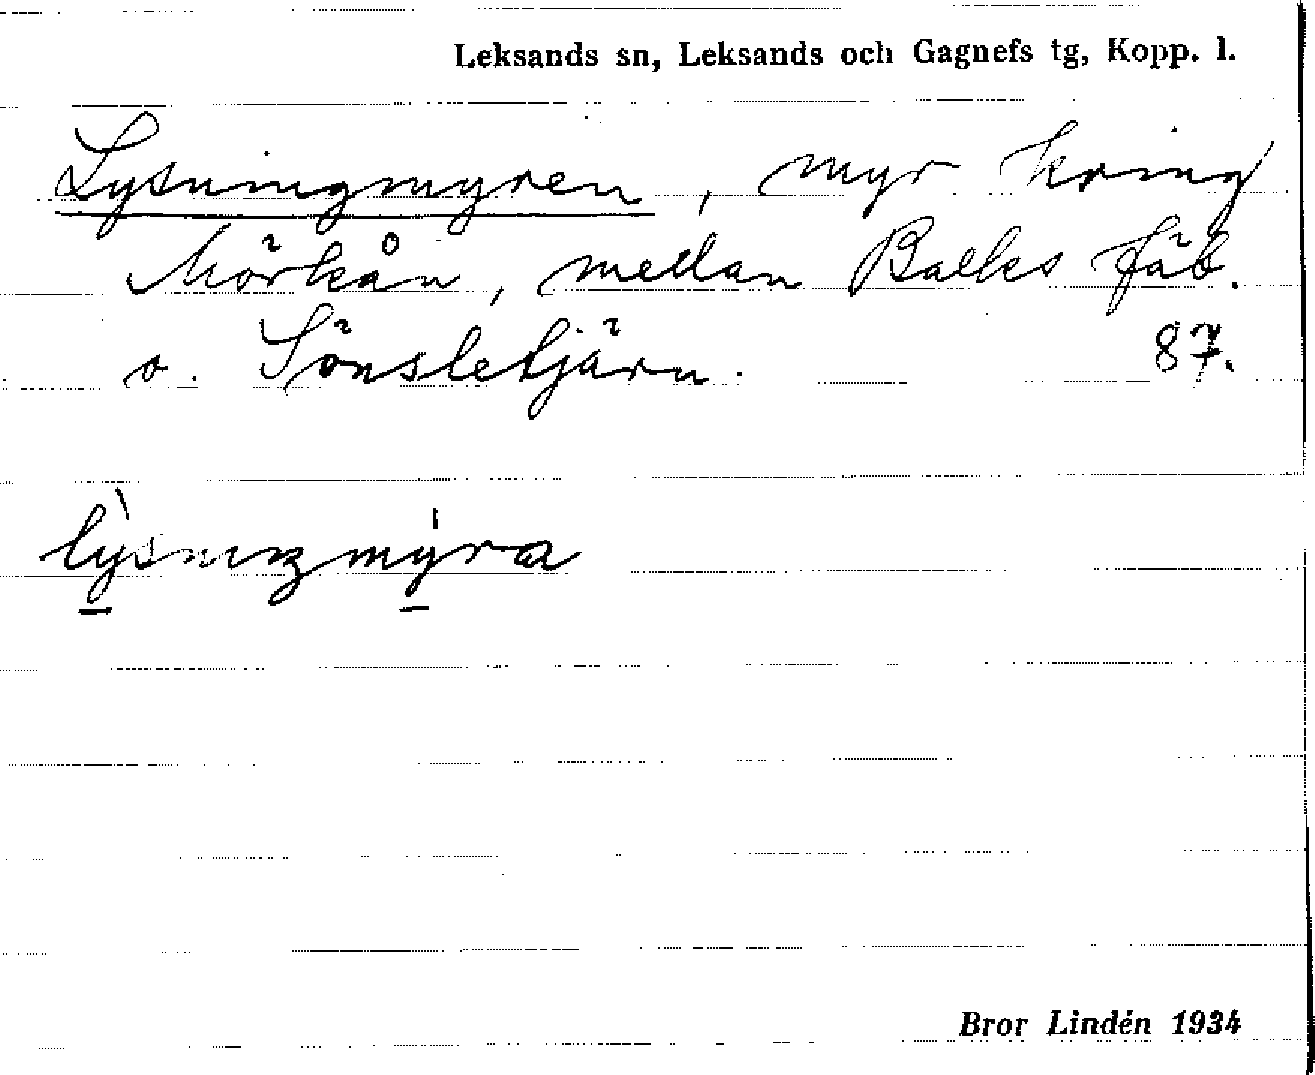 Leksands sn, Leksands och Gagnefs tg, Kopp. l.
Lysningmyren, myr kring
Mörkån, mellan Balks fäb.
o. Sönsletjärn. 87.
lysniŋmyra
Bror Lindén 1934